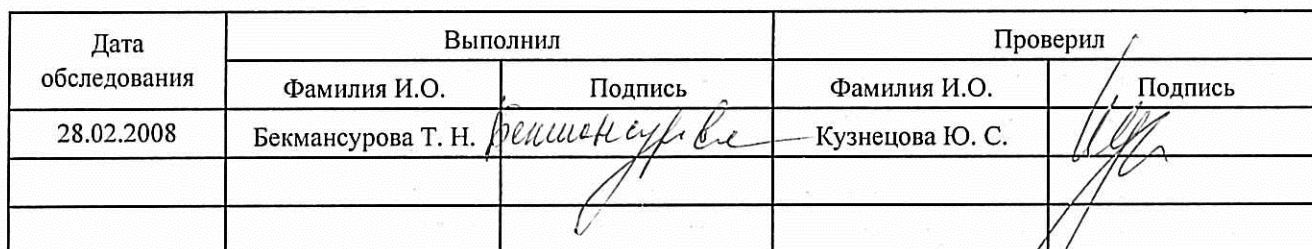 Дата обследования Выполнил Проверил
Фамилия И.О. Подпись Фамилия И.О. Подпись
28.02.2008 Бекмансурова Т. Н. Бекмансурова Кузнецова Ю. С.